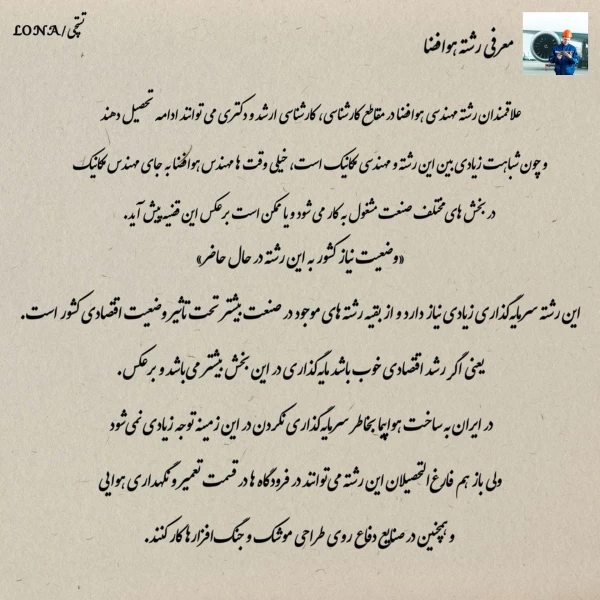 تستچی/LONA
معرفی رشته هوافضا
علاقمندان رشته مهندسی هوافضا در مقاطع کارشناسی، کارشناسی ارشد و دکتری می توانند ادامه تحصیل دهند
و چون شباهت زیادی بین این رشته و مهندسی مکانیک است، خیلی وقت ها مهندس هوافضا به جای مهندس مکانیک
در بخش های مختلف صنعت مشغول به کار می شود و یا ممکن است برعکس این قضیه پیش آید.
«وضعیت نیاز کشور به این رشته در حال حاضر»
این رشته سرمایه‌گذاری زیادی نیاز دارد و از بقیه رشته های موجود در صنعت بیشتر تحت تاثیر وضعیت اقتصادی کشور است.
یعنی اگر رشد اقتصادی خوب باشد مایه‌گذاری در این بخش بیشتر می‌باشد و برعکس.
در ایران به ساخت هواپیما بخاطر سرمایه‌گذاری نکردن در این زمینه توجه زیادی نمی‌شود
ولی باز هم فارغ‌التحصیلان این رشته می‌توانند در فرودگاه ها در قسمت تعمیر و نگهداری هوایی
و همچنین در صنایع دفاع روی طراحی موشک و جنگ‌افزارها کار کنند.